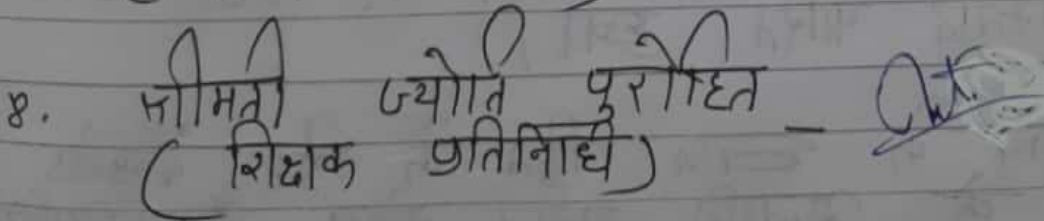 8. श्रीमती ज्योति पुरोहित -
(शिक्षक प्रतिनिधि)